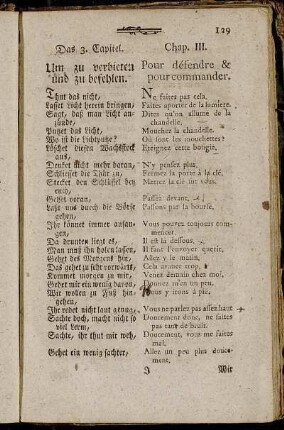 129
Das 3. Capitel.
Um zu verbieten
und zu befehlen.
Thut das nicht,
Lasset Licht herein bringen,
Sagt, daß man Licht an-
zünde,
Putzet das Licht,
Wo ist die Lichtputze?
Löschet diesen Wachsstock
aus,
Denket nicht mehr daran,
Schließet die Thür zu,
Stecket den Schlüssel bey
Gehet voran,
Laßt uns durch die Börse
gehen,
Ihr könnet immer anfan-
gen,
Da drunten liegt es,
Man muß ihn holen lassen,
Gehet des Morgens hin,
Das gehet zu sehr vorwärts,
Kommet morgen zu mir,
Gehet mir ein wenig daran,
Wir wollen zu Fuß hin-
gehen,
Ihr redet nicht laut genug,
Sachte doch, macht nicht so
viel Lerm,
Sachte, ihr thut mir weh,
Gehet ein wenig sachter,
Chap. III.
Pour défendre &
pour commander.
Ne faites pas cela.
Faites aporter de la lumiere.
Dites qu'on allume de la
chandelle,
Mouchez la chandelle.
Où sont les mouchettes?
Eteignez cette bougie.
N'y pensez plus.
Fermez la porte à la clé.
Mettez la clé
Passez devant,
Passons par la bourse,
Vous pouvez toujours com-
mencer.
Il est là dessous,
Il faut l'envoyer querir,
Allez y le matin,
Cela avance trop,
Venez demain chez moi,
Donnez m'en un peu,
Nous y irons à pié,
Vous ne parlez pas assez haut
Doucement donc, ne faites
pas tant de bruit.
Doucement, vous me faites
mal.
Allez un peu plus douce-
ment,
J
Wir